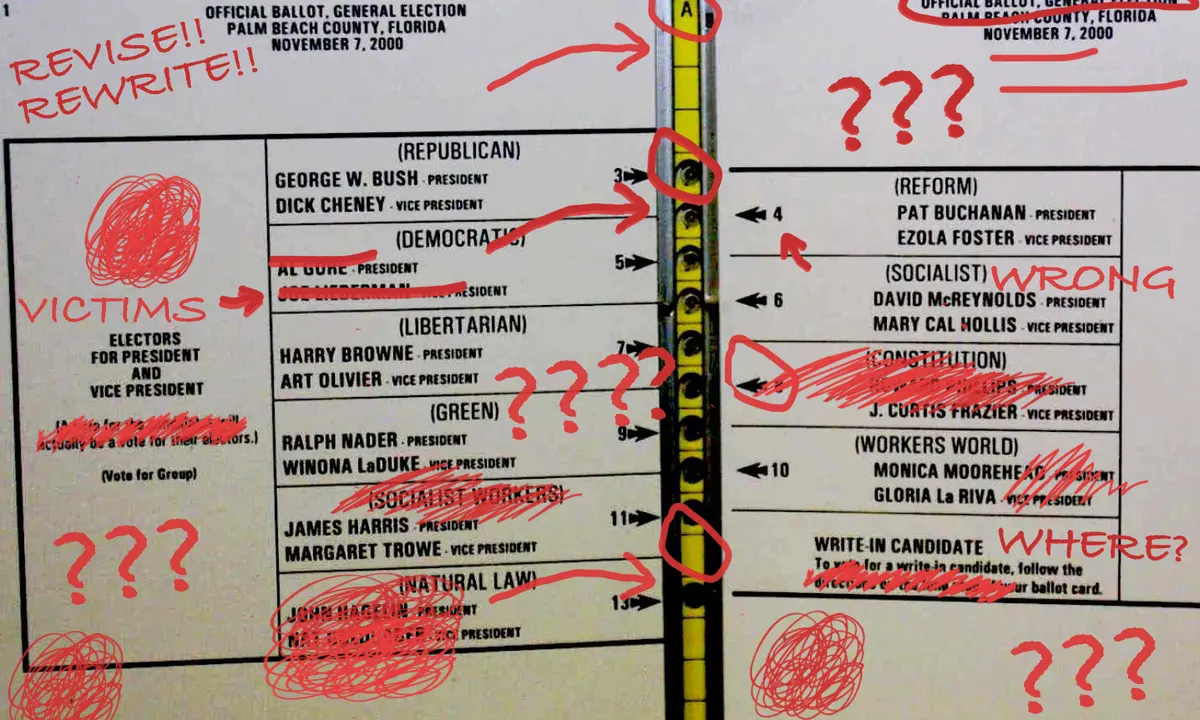 1
OFFICIAL BALLOT, GENERAL ELECTION
PALM BEACH COUNTY, FLORIDA
NOVEMBER 7, 2000
REVISE!!
REWRITE!!
A
OFFICIAL BALLOT, GENERAL ELECTION
PALM BEACH COUNTY, FLORIDA
NOVEMBER 7, 2000
???
VICTIMS
ELECTORS
FOR PRESIDENT
AND
VICE PRESIDENT
actually be a vote for their electors.)
(Vote for Group)
???
(REPUBLICAN)
GEORGE W. BUSH - PRESIDENT
DICK CHENEY - VICE PRESIDENT
3
(DEMOCRATIC)
AL GORE - PRESIDENT
JOE LIEBERMAN - VICE PRESIDENT
5
(LIBERTARIAN)
HARRY BROWNE - PRESIDENT
ART OLIVIER - VICE PRESIDENT
7
????
(GREEN)
RALPH NADER - PRESIDENT
WINONA LaDUKE - VICE PRESIDENT
9
(SOCIALIST WORKERS)
JAMES HARRIS - PRESIDENT
MARGARET TROWE - VICE PRESIDENT
11
(NATURAL LAW)
JOHN HAGELIN - PRESIDENT
VICE PRESIDENT
13
(REFORM)
4
PAT BUCHANAN - PRESIDENT
EZOLA FOSTER - VICE PRESIDENT
(SOCIALIST)
WRONG
6
DAVID McREYNOLDS - PRESIDENT
MARY CAL HOLLIS - VICE PRESIDENT
(CONSTITUTION)
PHILLIPS - PRESIDENT
J. CURTIS FRAZIER - VICE PRESIDENT
(WORKERS WORLD)
10
MONICA MOOREHEAD - PRESIDENT
GLORIA La RIVA - VICE PRESIDENT
WRITE-IN CANDIDATE
WHERE?
To vote for a write-in candidate, follow the
your ballot card.
???